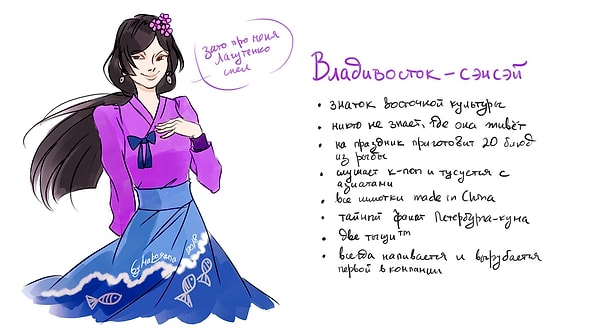 зато про меня
Лагутенко
спел
Владивосток-сэнсэй
• знаток восточной культуры
• никто не знает, где она живёт
• на праздник приготовит 20 блюд
из рыбы
• слушает к-поп и тусуется с
азиатами
• все шмотки made in China
• тайный фанат Петербурга-куна
• две тыщи™
• всегда напивается и вырубается
первой в компании
by Naboyana